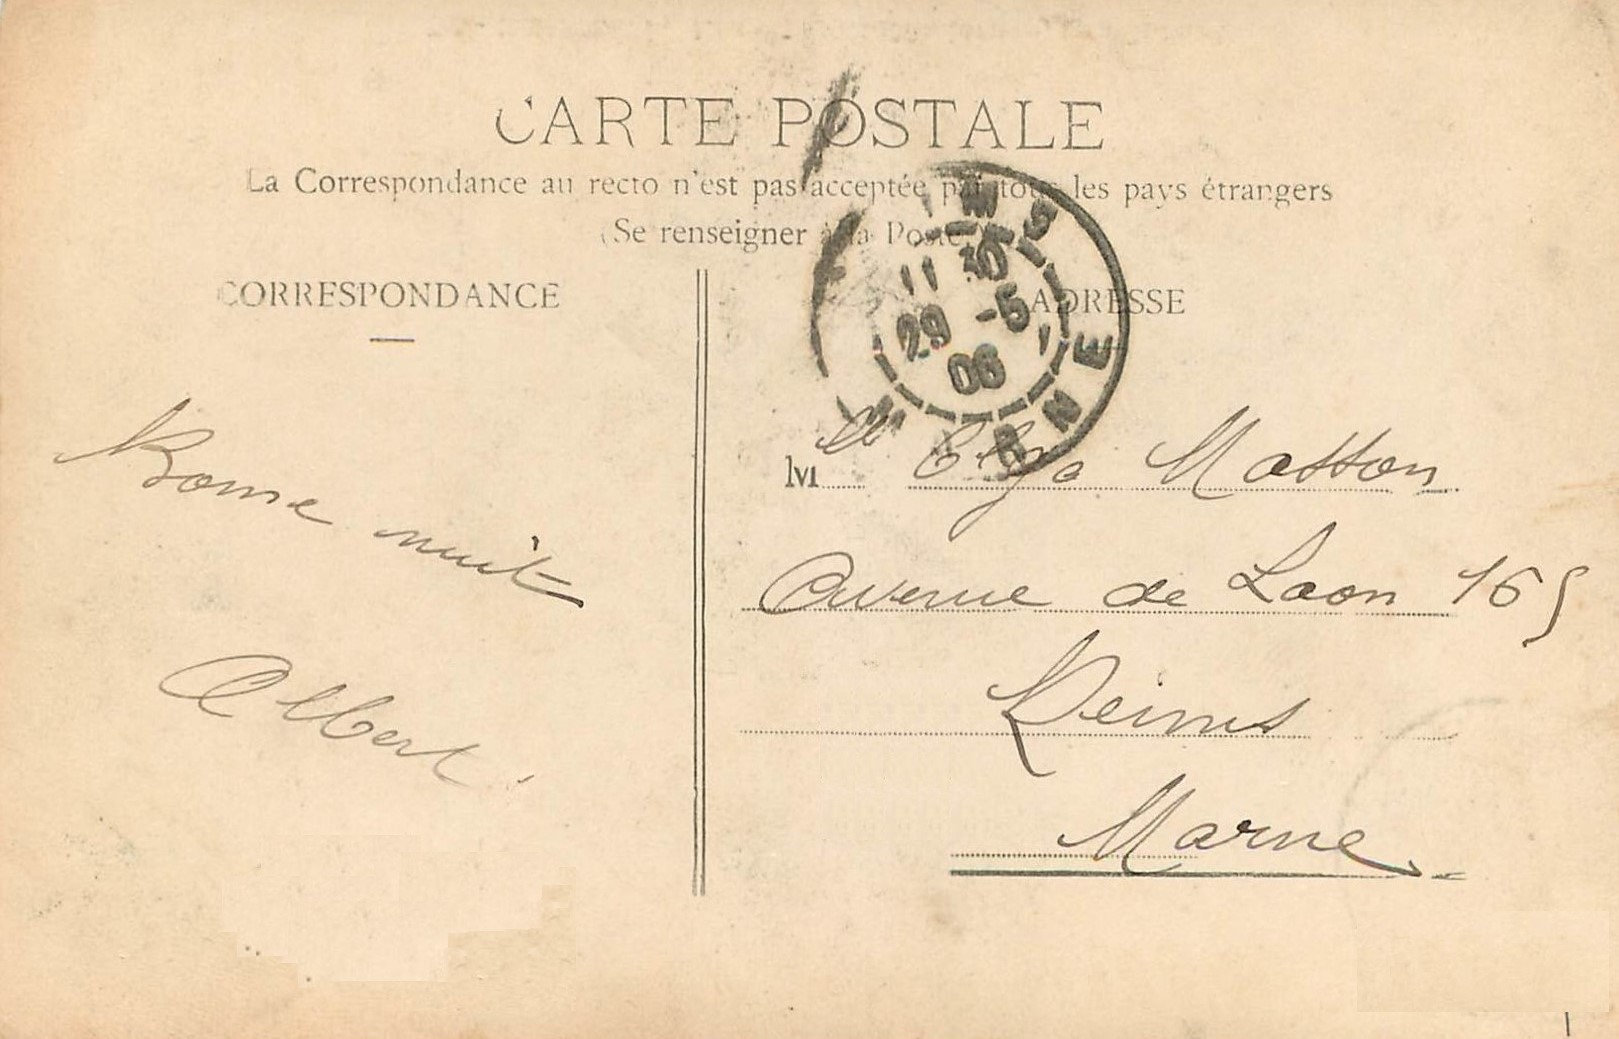 CARTE POSTALE
La Correspondance au recto n'est pas acceptée par tous les pays étrangers
(Se renseigner à la Poste)
CORRESPONDANCE
ADRESSE
REIMS
11 30
29 -5
06
MARNE
Bonne nuit
Albert.
Mlle Olga Masson
Avenue de Laon 165
Reims
Marne